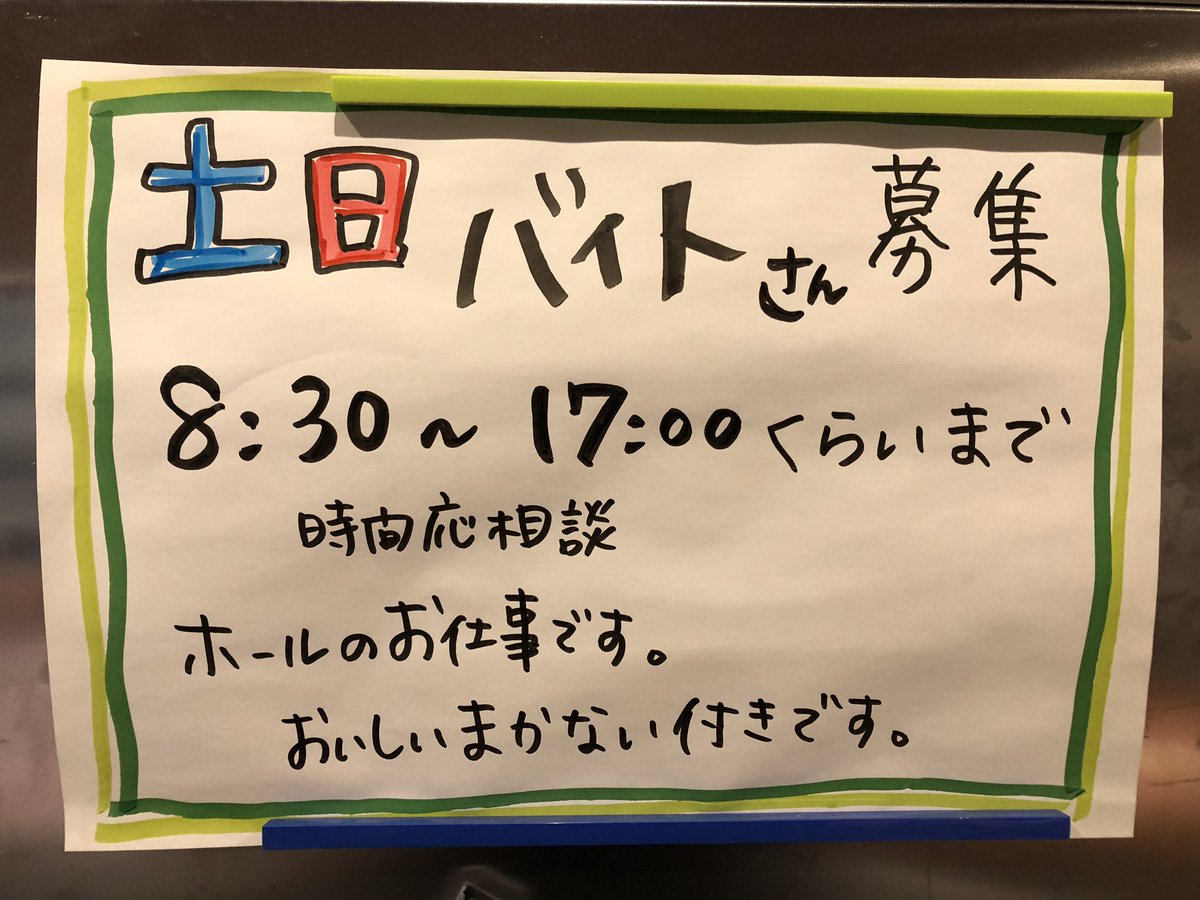 土日バイトさん募集
8:30～17:00くらいまで
時間応相談
ホールのお仕事です。
おいしいまかない付きです。